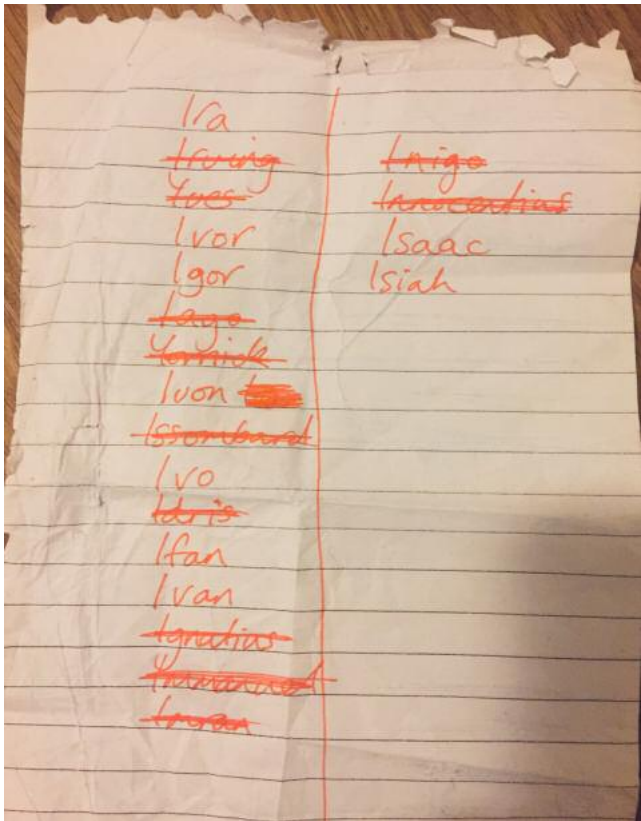 Ira
Irving
Yves
Ivor
Igor
Iago
Yorrick
Ivon
Issombard
Ivo
Idris
Ifan
Ivan
Ignatius
Immanuel
Imran
Inigo
Innocentius
Isaac
Isiah